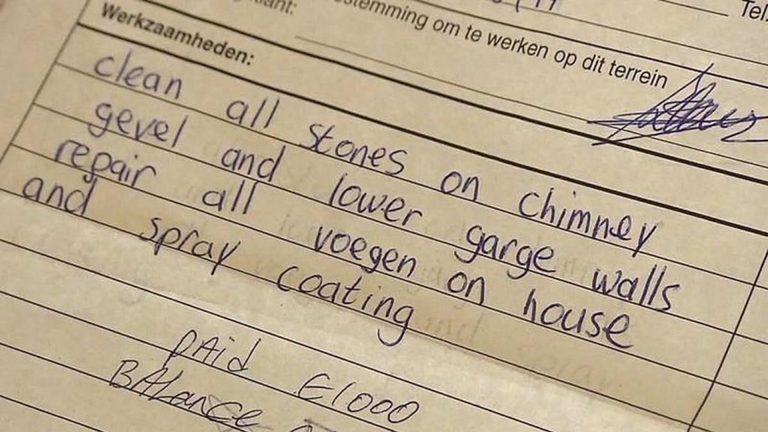 Tel.
klant:
stemming om te werken op dit terrein
Werkzaamheden:
clean all stones on chimney
gevel and lower garge walls
repair all voegen on house
and spray coating
PAid €1000
BALance